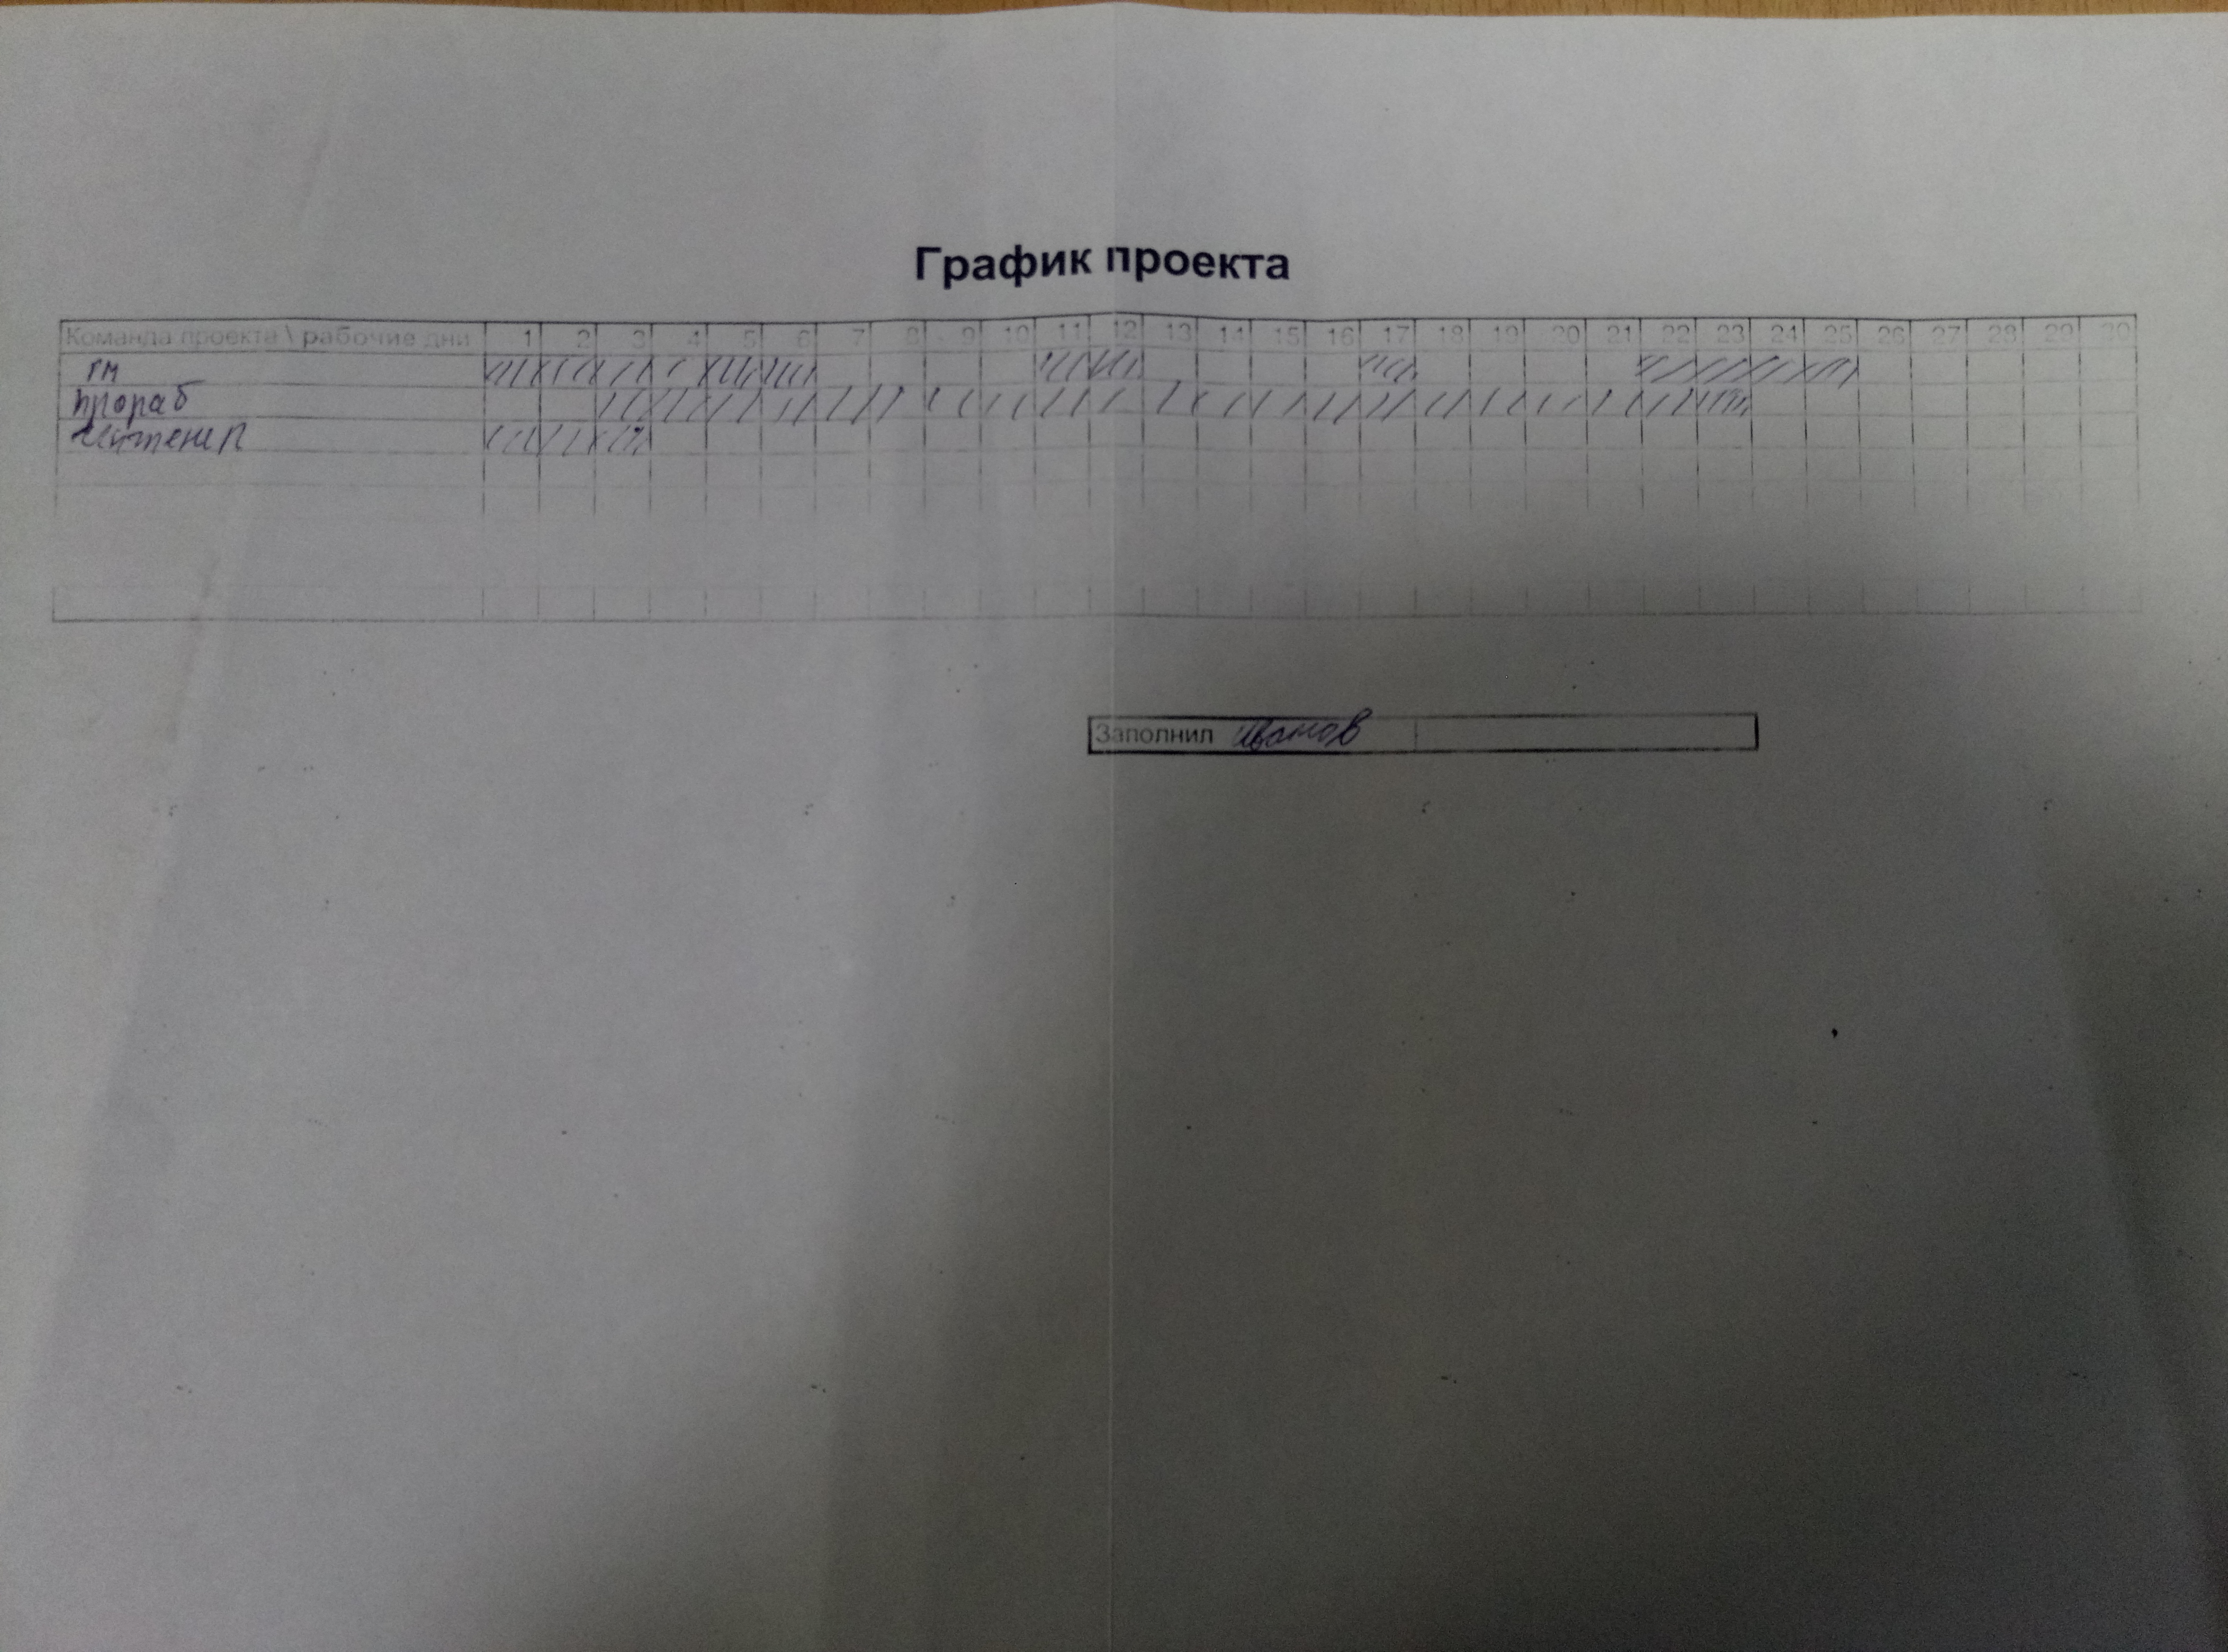 График проекта
Команда проекта \ рабочие дни 1 2 3 4 5 6 7 8 9 10 11 12 13 14 15 16 17 18 19 20 21 22 23 24 25 26 27 28 29 30
РМ
Прораб
Заполнил Иванов